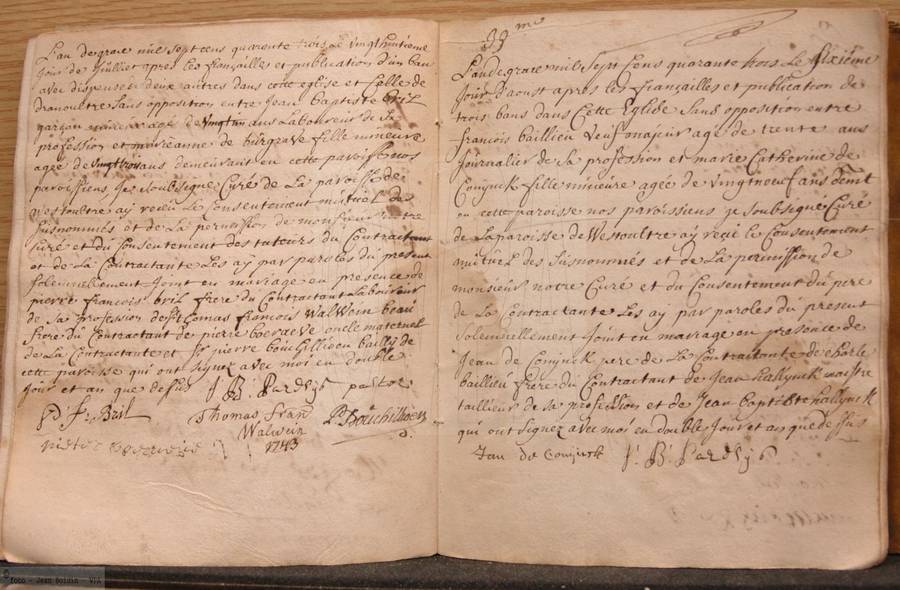 L'an de grace mil sept cens quarante trois Le vingthuitieme
jour de Juilliet apres les fiançailles et publication d'un ban
avec dispense de deux autres dans cette eglise et Celle de
dranoultre sans opposition entre Jean baptiste bril
garçon mineur agé de vingt ans Laboureur de sa
profession et marieanne de burgrave fille mineure
agée de vingttrois ans demeurant en cette paroisse nos
paroissiens, Je soubsigné Curé de La paroisse de
westoultre aÿ recu Le Consentement mutuel des
susnommés et de La permission de monsieur notre
Curé et du Consentement des tuteurs du Contractant
et de La Contractante Les aÿ par paroles du present
solemnellement Joint en mariage en presence de
pierre françois bril frere du Contractant Laboureur
de sa profession de Thomas françois WalWein beau
frere du Contractant de pierre boeraeve oncle maternel
de La Contractante et Sr pierre bouchillioen baillÿ de
cette paroisse qui ont signez avec moi en double
Jour et an que dessus J: B: Pardÿs pastor
P: f: Bril
Thomas fran
Walwein
1743
P Bouchillioen
pieter boeraeve
33me
L'an de grace mil sept Cens quarante trois Le sixième
Jour d'aoust apres les fiançailles et publication de
trois bans dans Cette Eglise sans opposition entre
françois baillieu veuf majeur agé de trente ans
Journalier de sa profession et marie Catherine de
Coninck fille mineure agée de vingtneuf ans demt
en cette paroisse nos paroissiens je soubsigné Curé
de La paroisse de Westoultre aÿ reçu le Consentement
mutuel des susnommés et de La permission de
monsieur notre Curé et du Consentement du pere
de La Contractante Les aÿ par paroles du present
solemnellement Joint en mariage en presence de
Jean de Coninck pere de La Contractante de Charle
baillieu frere du Contractant de Jean hallÿnck maistre
tailleur de sa profession et de Jean baptiste hallÿnck
qui ont signez avec moi en double Jour et an que dessus
Jan de Coninck J: B: Pardÿs
© foto - Jean Boidin - VVA